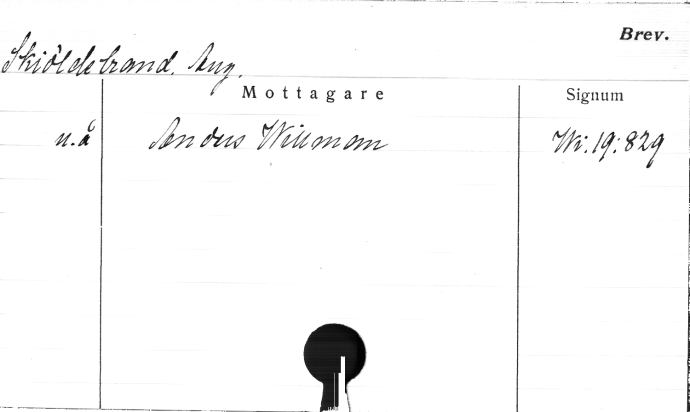 Brev.
Skiöldebrand, Aug.
Mottagare Signum
u.å Anders Willman Wi:19:829